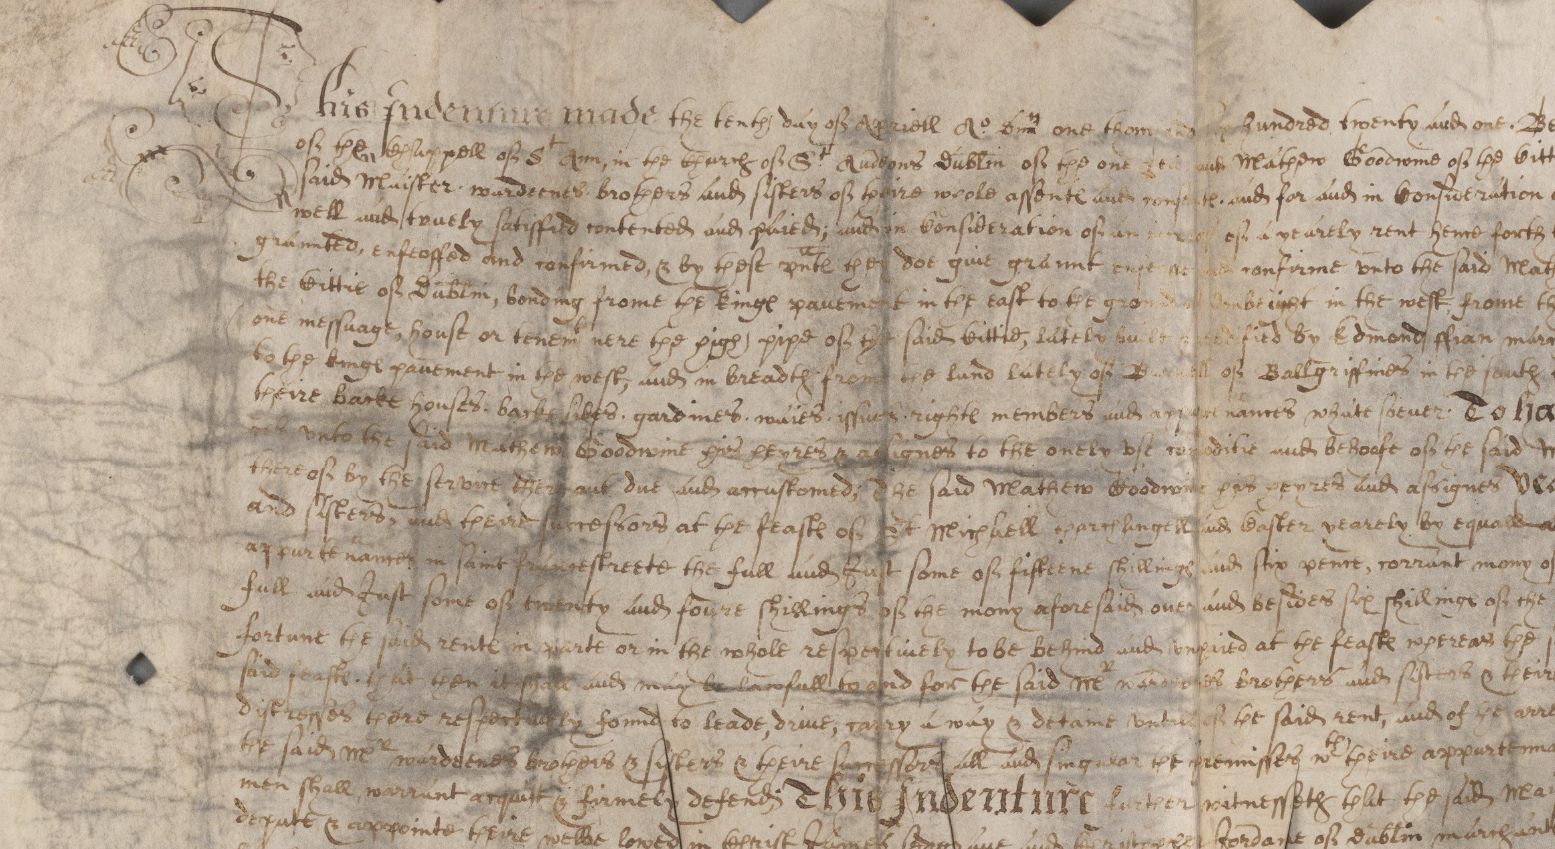 This Indenture made the tenth day of Apriell Ao Dmi one thom hundred twenty and one. Be
of the Chappell of St Ann, in the Church of St Audeons Dublin of the one and Mathew Goodwine of the Citt
said Maister. wardeenes brothers and sisters of theire whole assente and and for and in Consideration
well and truely satisfied contented and paied; and in Consideration of an of a yearely rent hence forth
graunted, enfeoffed and confirmed, & by these pnte they doe give graunt confirme unto the said Math
the Cittie of Dublin, bonding frome the kinge pavement in the east to the in the west frome th
one messuage, house or tenemt nere the high pipe of the said Cittie, lately built edified by Edmond ffian mar
to the kinge pavement in the west, and in breadth from the land lately of of Ballgriffines in the south
theire backe houses. backe sides. gardines. waies. issues. righte members and appurtenances whate soever. To ha
unto the said Mathew Goodwine his heyres & assignes to the onely use comoditie and behoofe of the said M
thereof by the service thereout due and accustomed; The said Mathew Goodwine his heyres and assignes
and sisters, and theire successors at the feaste of St Michell tharchangell and Easter yearely by equall
appurtenances in saint fraunces streete the full and Just some of fifteene shillinge and six pence, corrant mony of
full and Just some of twenty and foure shillings of the mony aforesaid over and besides six shillinge of the
fortune the said rente in parte or in the whole respectively to be behind and unpaied at the feaste whereas the
said feaste. that then it shall and may be lawfull to and for the said Mr wardeenes brothers and sisters & their
distresses there respectively found to leade, drive, carry away & detaine untill of the said rent, and of he arre
the said Mr wardeenes brothers & sisters & theire successors all and singular the premisses wth theire appurtenna
men shall warrant acquit & firmely defend; This Indenture further witnesseth that the said Mai
depute & appointe theire welbe loved in Christ James and Christopher Jordane of Dublin marchants